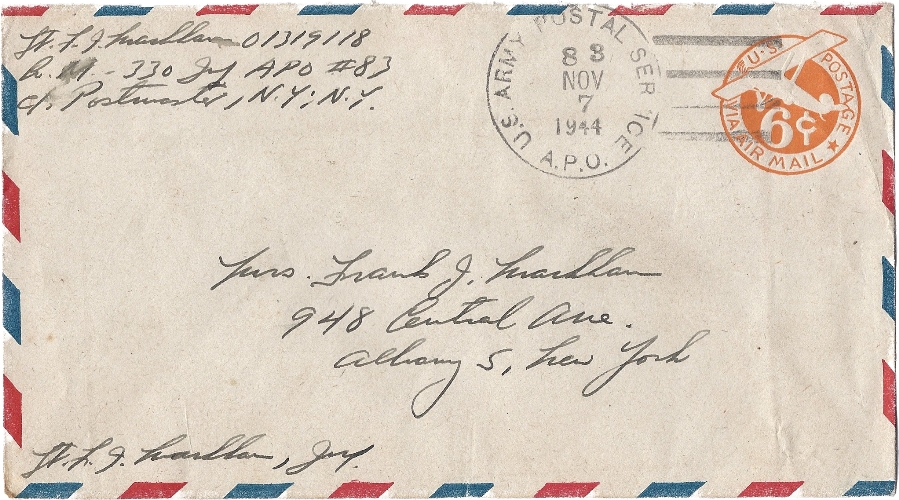 Lt. 01319118
M - 330 Inf APO #83
c/o Postmaster, N.Y., N.Y.
U.S. ARMY POSTAL SERVICE
83
NOV
7
1944
A.P.O.
U.S. POSTAGE
6¢
VIA AIR MAIL
Mrs. Frank J.
948 Central Ave.
Albany 5, New York
Lt. Inf.